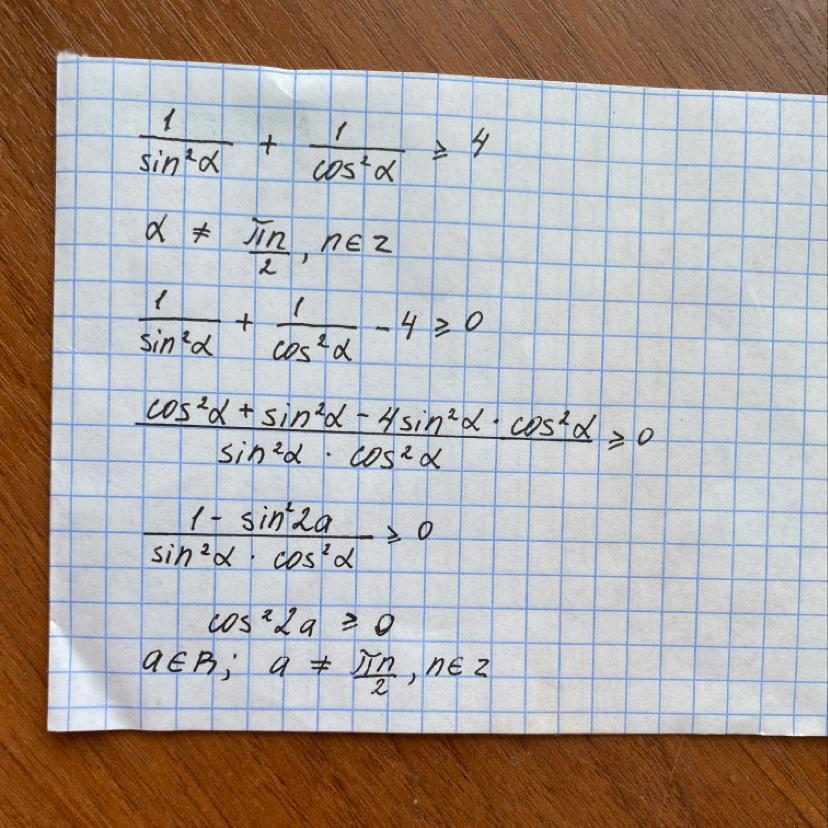 1/sin²α + 1/cos²α ⩾ 4
α ≠ πn/2, n∈z
1/sin²α + 1/cos²α - 4 ⩾ 0
(cos²α + sin²α - 4sin²α · cos²α)/(sin²α · cos²α) ⩾ 0
(1 - sin²2a)/(sin²α · cos²α) ⩾ 0
cos²2a ⩾ 0
a∈R; a ≠ πn/2, n∈z